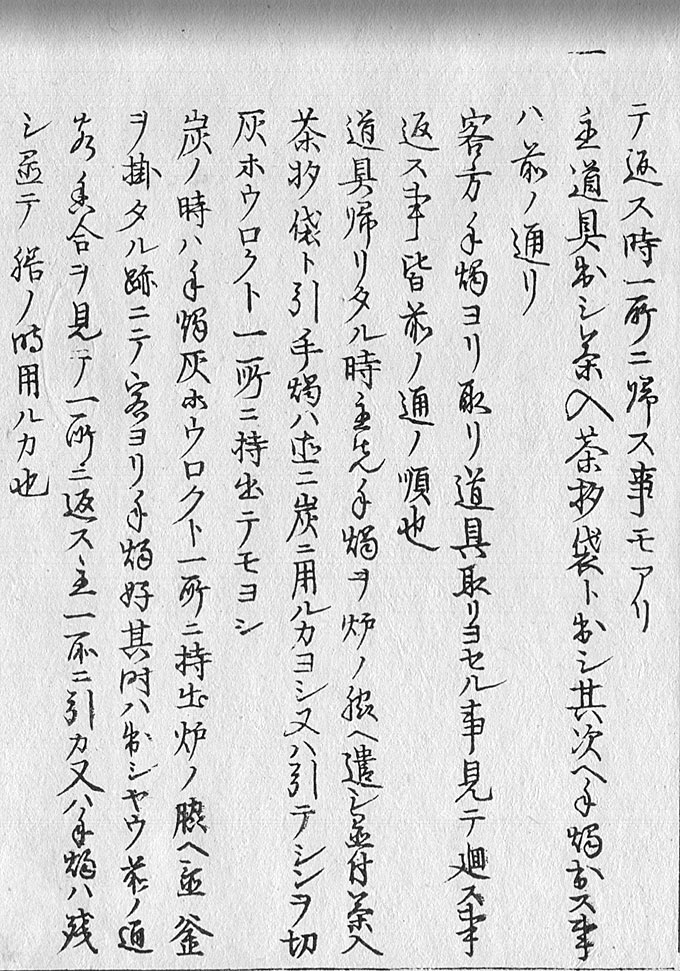 テ返ス時一所ニ帰ス事モアリ
一 主道具出シ茶入茶杓袋ト出シ其次ヘ手燭出ス事
ハ前ノ通リ
客方手燭ヨリ取リ道具取リヨセル事見テ廻ス事
返ス事皆前ノ通ノ順也
道具帰リタル時主先手燭ヲ炉ノ脇ヘ遣シ置付茶入
茶杓袋ト引手燭ハ直ニ炭ニ用ルカヨシ又ハ引テシンヲ切
灰ホウロクト一所ニ持出テモヨシ
炭ノ時ハ手燭灰ホウロクト一所ニ持出炉ノ脇ヘ置釜
ヲ掛タル跡ニテ客ヨリ手燭好其時ハ出シヤウ前ノ通
客香合ヲ見テ一所ニ返ス主一所ニ引カ又ハ手燭ハ残
シ置テ ノ時用ルカ也